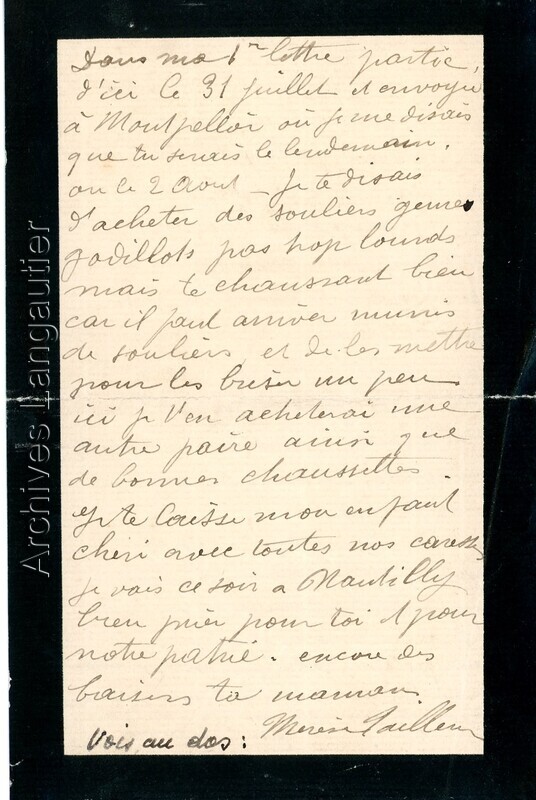 Dans ma 1re lettre partie
d'ici le 31 juillet et envoyée
à Montpellier où je me disais
que tu serais le lendemain.
ou le 2 Aout _ Je te disais
d'acheter des souliers genre
godillots pas trop lourds
mais te chaussant bien
car il faut arriver munis
de souliers et de les mettre
pour les briser un peu
ici je t'en acheterai une
autre paire ainsi que
de bonnes chaussettes.
Je te laisse mon enfant
chéri avec toutes nos caresses
je vais ce soir a Nantilly
bien prier pour toi et pour
notre patrie. encore des
baisers ta maman
Vois au dos :
Archives Langautier